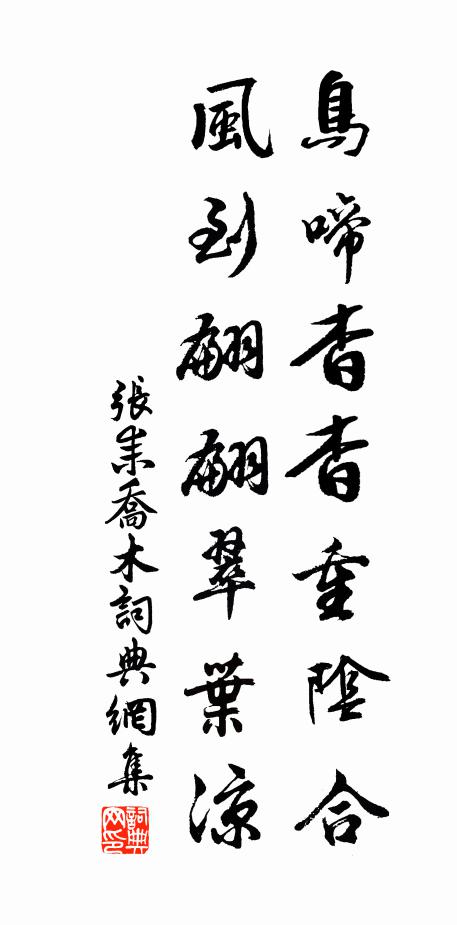 鳥啼杳杳重陰合
風到翩翩翠葉涼
張耒喬木詞典網集
詞典网印